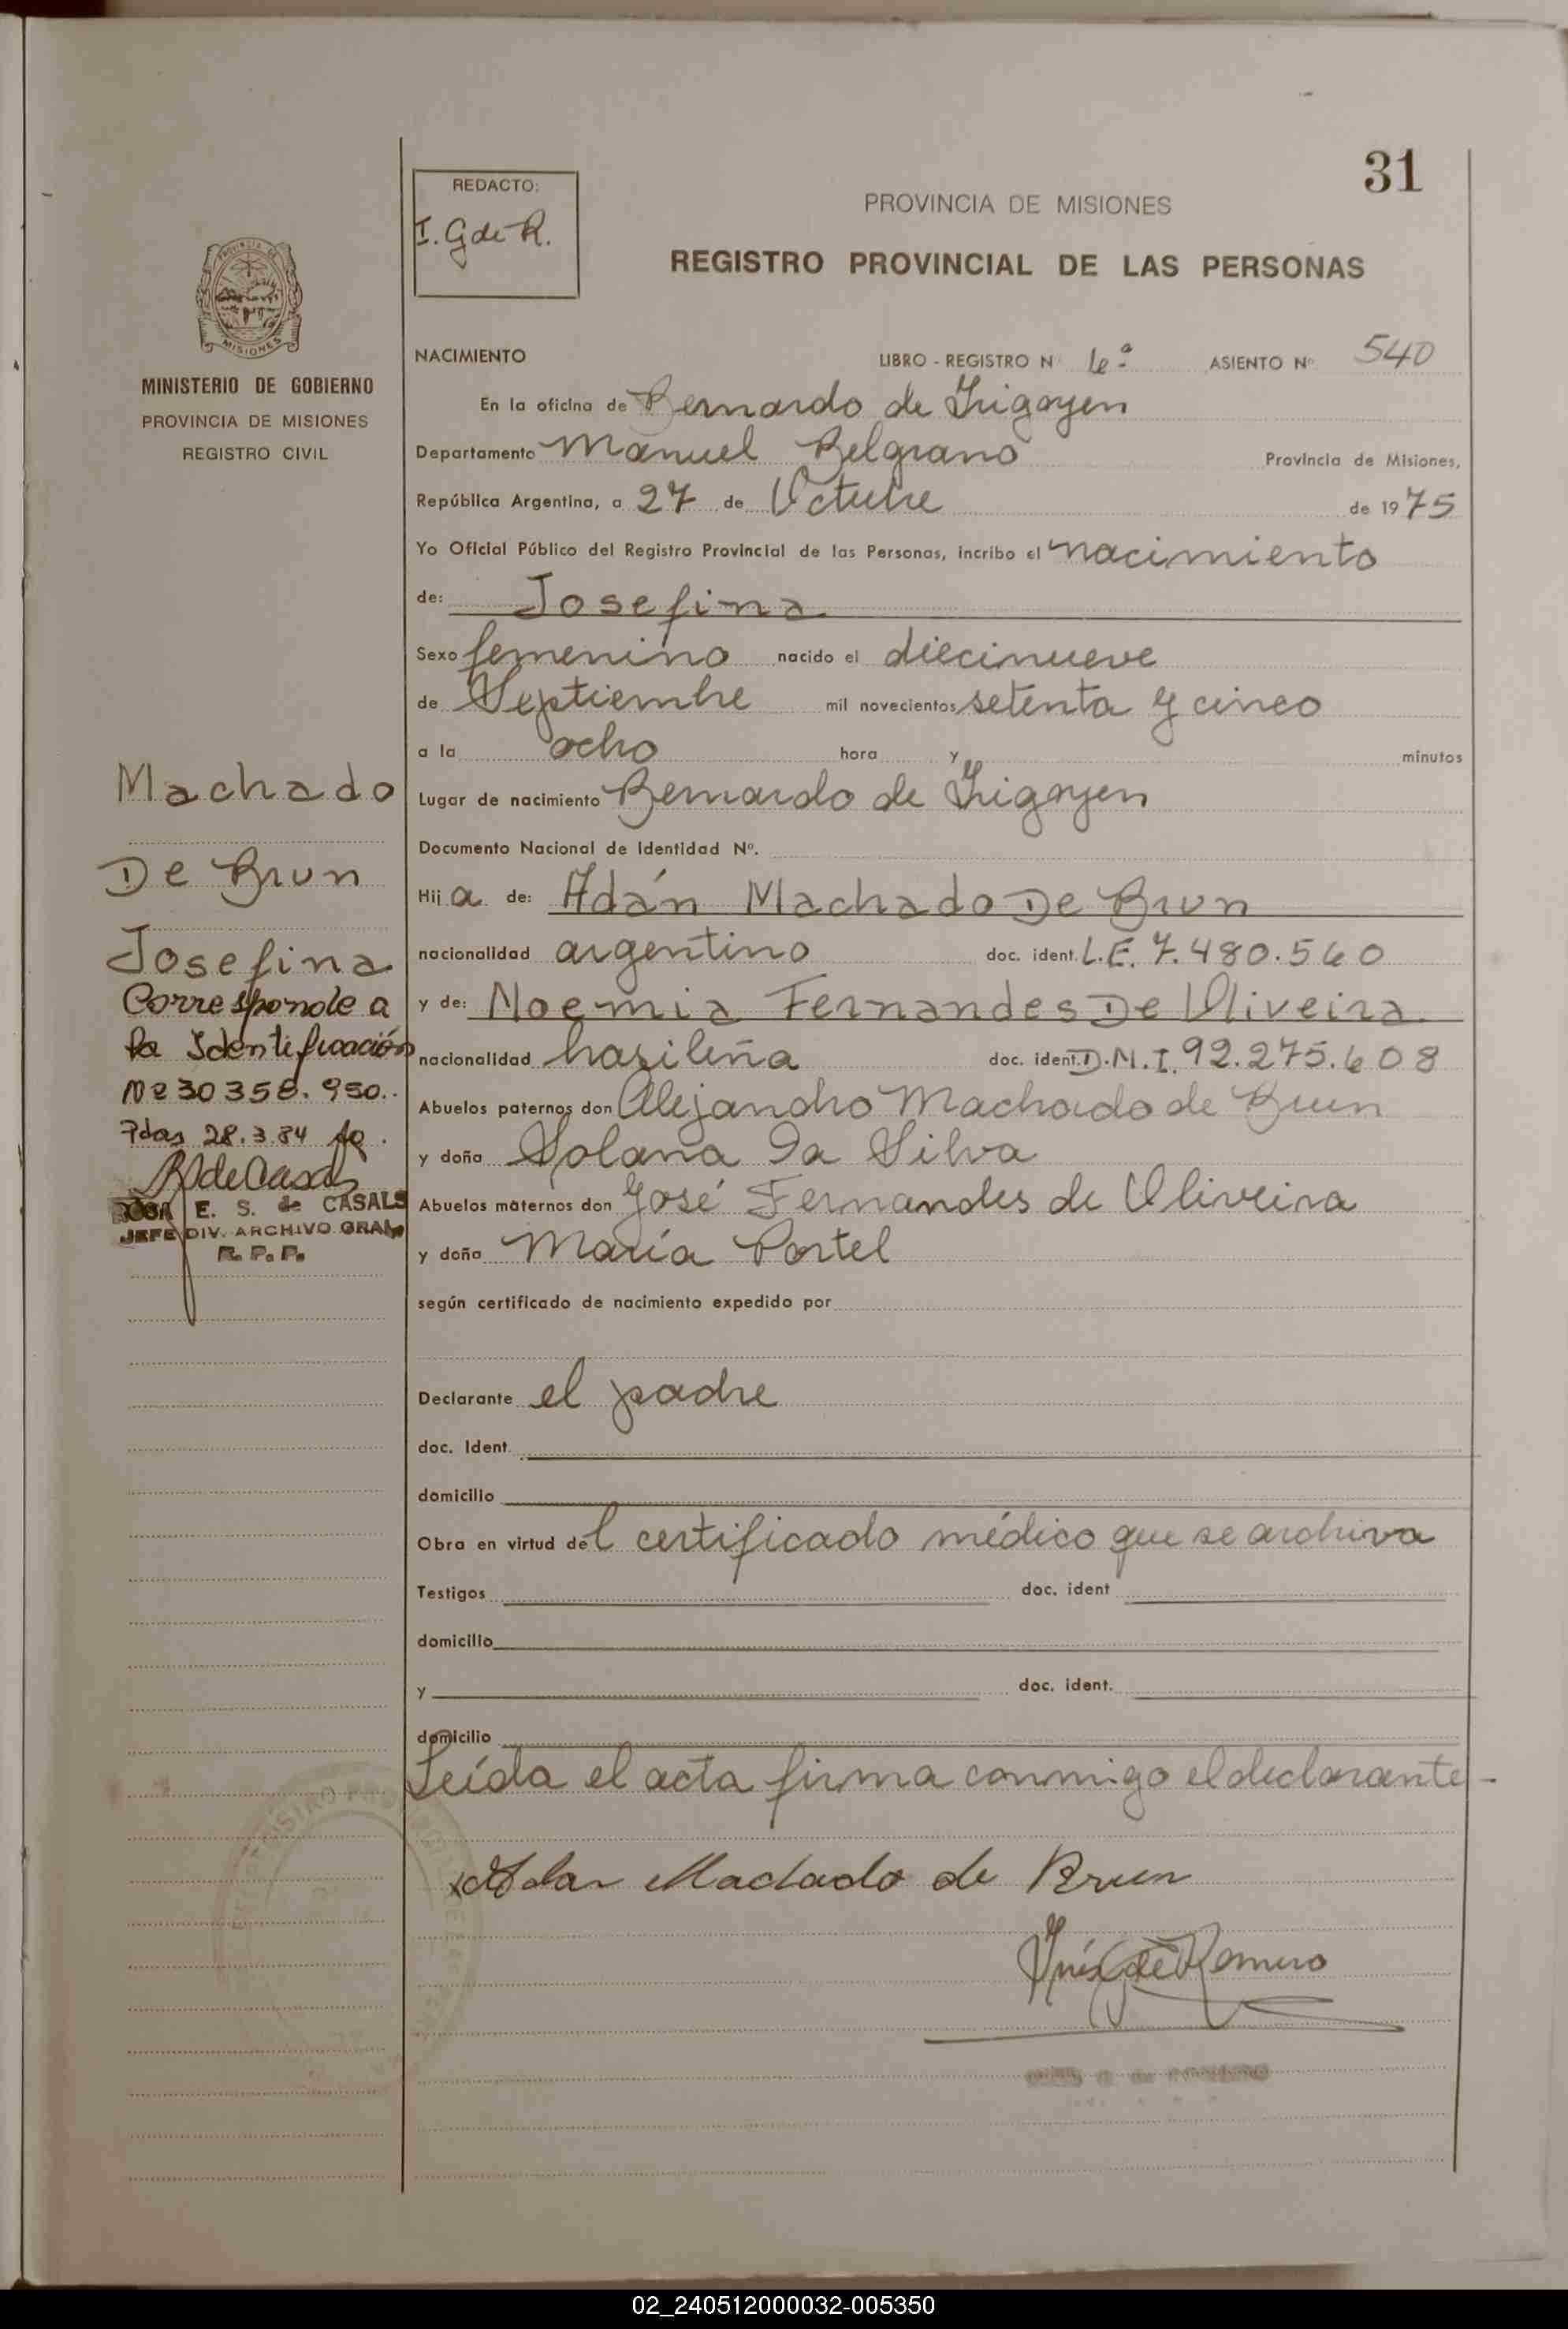 31
REDACTO:
I. G de R.
PROVINCIA DE MISIONES
REGISTRO PROVINCIAL DE LAS PERSONAS
MISIONES
MINISTERIO DE GOBIERNO
PROVINCIA DE MISIONES
REGISTRO CIVIL
NACIMIENTO LIBRO - REGISTRO N ASIENTO Nº 540
En la oficina de Bernardo de Irigoyen
Departamento Manuel Belgrano Provincia de Misiones,
República Argentina, a 27 de Octubre de 1975
Yo Oficial Público del Registro Provincial de las Personas, incribo el nacimiento
de: Josefina
Sexo femenino nacido el diecinueve
de Septiembre mil novecientos setenta y cinco
a la ocho hora y minutos
Lugar de nacimiento Bernardo de Irigoyen
Documento Nacional de Identidad Nº.
Hija de: Adán Machado De Brun
nacionalidad argentino doc. ident. L.E. 7.480.560
y de: Noemia Fernandes De Oliveira
nacionalidad brasileña doc. ident. D.N.I. 92.275.608
Abuelos paternos don Alejandro Machado de Brun
y doña Solana Da Silva
Abuelos maternos don José Fernandes de Oliveira
y doña María Portel
según certificado de nacimiento expedido por
Declarante el padre
doc. Ident.
domicilio
Obra en virtud del certificado médico que se archiva
Testigos doc. ident
domicilio
y doc. ident.
domicilio
Leída el acta firma conmigo el declarante -
Adan Machado de Brun
Inés G de Romero
Machado
De Brun
Josefina
Corresponde a
la Identificación
Nº 30358.950.
Pdas 28.3.84
E. S. de CASALS
JEFE DIV. ARCHIVO GRAL
R. P. P.
02_240512000032-005350